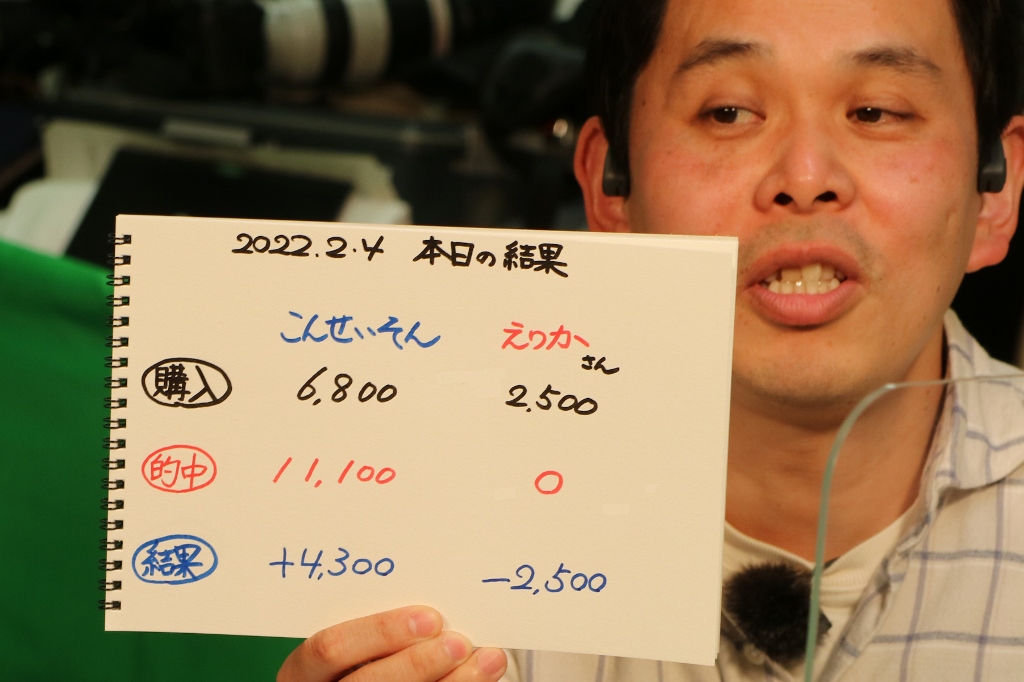 2022.2.4 本日の結果
こんせいそん えりかさん
購入 6,800 2,500
的中 11,100 0
結果 +4,300 -2,500